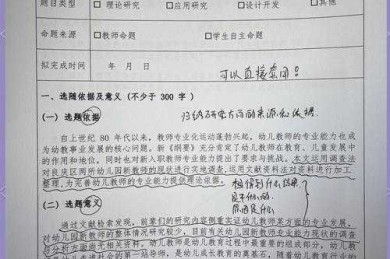 题目类型 □ 理论研究 □应用研究 □设计开发 □其他
命题来源 □教师命题 □学生自主命题
拟完成时间 年 月 日
可以直接套用!
一、选题依据及意义(不少于 300 字)
(一)选题依据
归纳研究方向的来源和依据.
自上世纪 80 年代以来,教师专业化运动蓬勃兴起,幼儿教师的专业能力也成
为幼教事业发展的核心问题,新《纲要》充分肯定了幼儿教师在教育、儿童发展中
的作用和地位,同时也对新入职教师专业能力提出了要求与挑战。本文运用调查法
对良庆区两所幼儿园新教师的现状进行实地调查,运用文献资料法对资料进行加工
整理,为完善幼儿教师的专业能力提供理论依据。
想得到什么结果
是什么
(二)选题意义
通过文献检索发现,前辈们的研究内容侧重实证幼儿教师某方面的专业发展,
对幼儿园新教师的整体情况研究较少,目前有关幼儿园新教师专业能力现状的调查
无相关资料。幼儿教师是幼儿教育过程中最重要的组成部分,幼儿